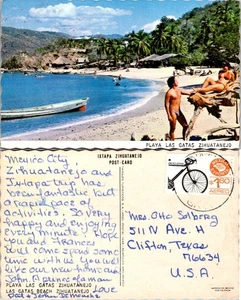 PLAYA LAS GATAS ZIHUATANEJO
IXTAPA ZIHUATANEJO
POST CARD
PLAYA LAS GATAS ZIHUATANEJO
Mexico City
Zihuatanejo and
Ixtapa trip has
been fantastic but
a rapid pace of
activities. So very
happy and enjoying
every minute. Hope
you and Frances
will come spend some
time with us you will
like our new home and
John a prince of a man
Love
PLAYA LAS GATAS ZIHUATANEJO
LAS GATAS BEACH ZIHUATANEJO
Mrs. Otto Solberg
511 N Ave. H
Clifton, Texas
76634
U.S.A.